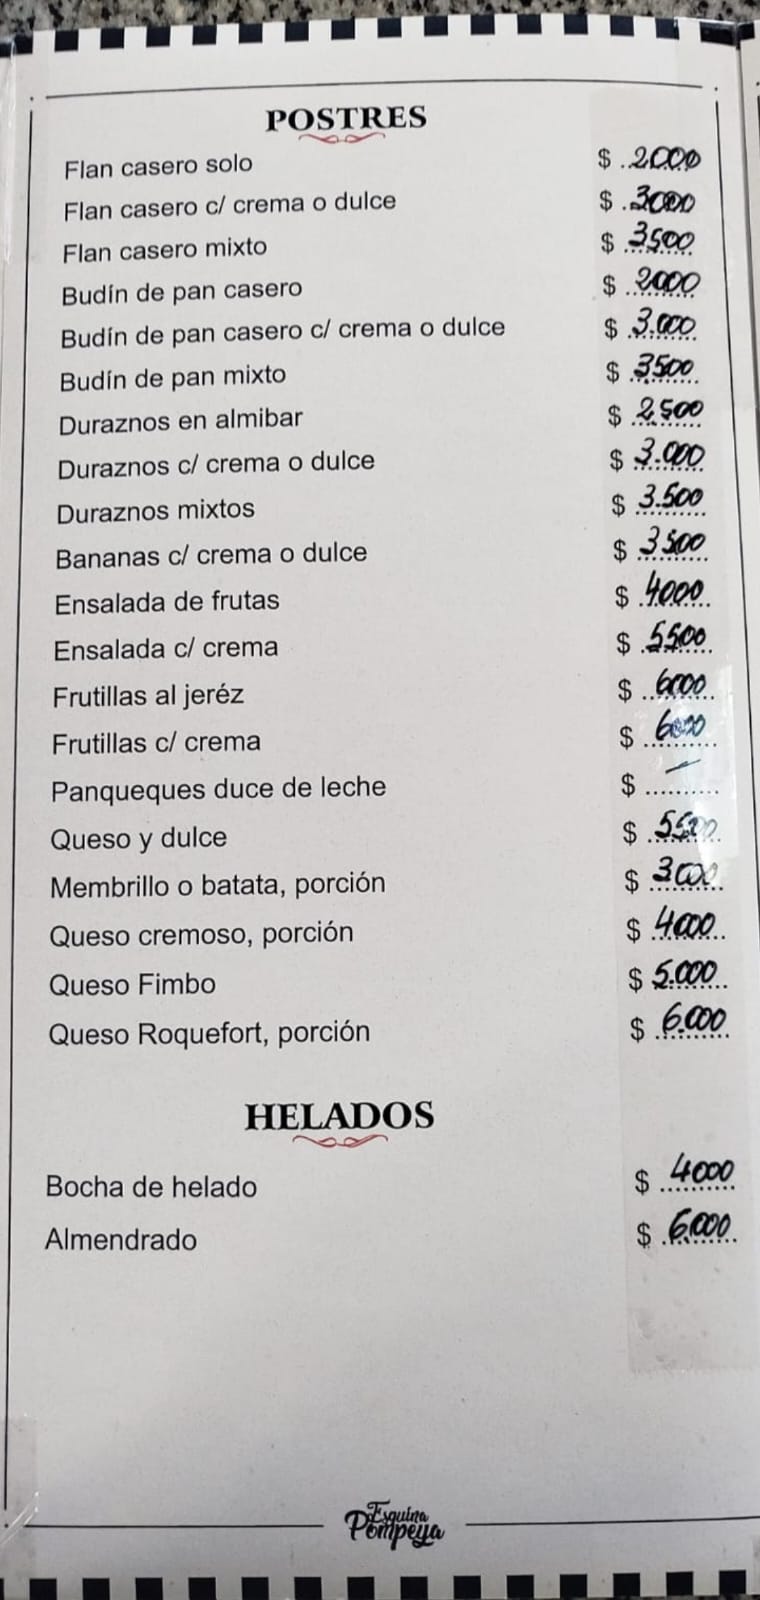 POSTRES
Flan casero solo $ 2000
Flan casero c/ crema o dulce $ 3000
Flan casero mixto $ 3500
Budín de pan casero $ 2000
Budín de pan casero c/ crema o dulce $ 3.000
Budín de pan mixto $ 3500
Duraznos en almibar $ 2500
Duraznos c/ crema o dulce $ 3.000
Duraznos mixtos $ 3.500
Bananas c/ crema o dulce $ 3500
Ensalada de frutas $ 4000
Ensalada c/ crema $ 5500
Frutillas al jeréz $ 6000
Frutillas c/ crema $ 6000
Panqueques duce de leche $ –
Queso y dulce $ 5500
Membrillo o batata, porción $ 3000
Queso cremoso, porción $ 4000
Queso Fimbo $ 5.000
Queso Roquefort, porción $ 6.000
HELADOS
Bocha de helado $ 4000
Almendrado $ 6.000
Esquina
Pompeya